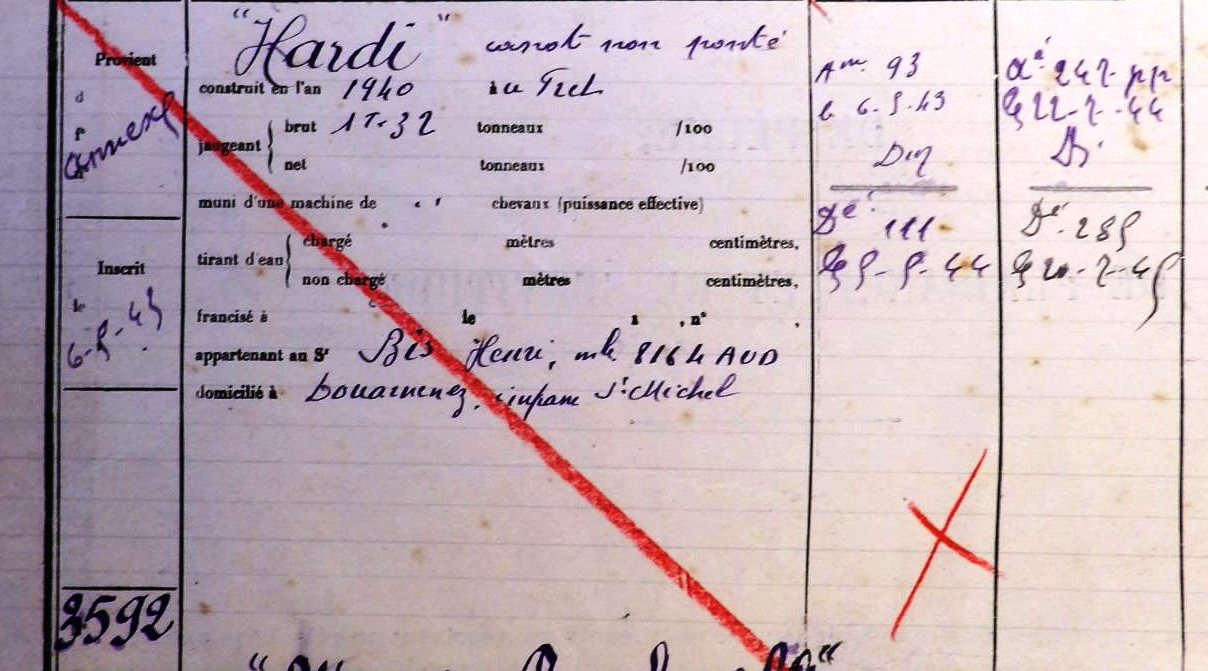 Provient
d
Annexe
Inscrit
le
6-5-43
3592
"Hardi" canot non ponté
construit en l'an 1940 à au Fret
jaugeant brut 1T-32 tonneaux /100
net tonneaux /100
muni d'une machine de " chevaux (puissance effective)
tirant d'eau chargé mètres centimètres,
non chargé mètres centimètres,
francisé à le 1 , n° .
appartenant au Sr Bis Henri, mle 8164 AUD
domicilié à Douarnenez, impasse St Michel
Am. 93
le 6-5-43
Dz
Dé 111
le 5-5-44
aé 247 pp
le 22-7-44
Dz
Dé. 285
le 20-7-45